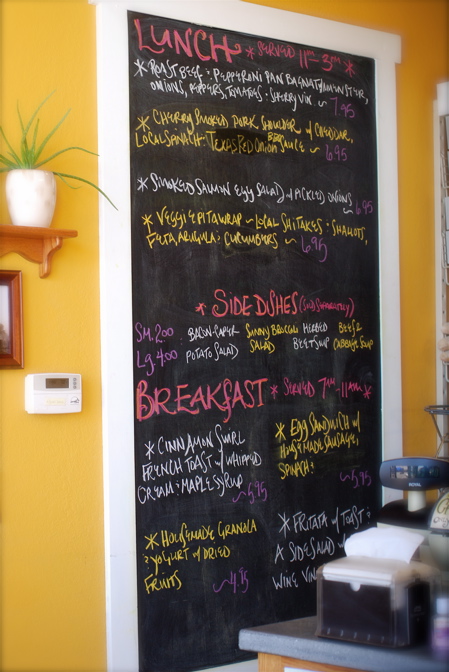 LUNCH * SERVED 11AM-3PM *
* ROAST BEEF & PEPPERONI PAN BAGNAT W/ MUNSTER,
ONIONS, PEPPERS, TOMATOES & SHERRY VIN. ~ 7.95
* CHERRY SMOKED PORK SHOULDER W/ CHEDDAR,
LOCAL SPINACH & TEXAS RED ONION BBQ SAUCE ~ 6.95
* SMOKED SALMON EGG SALAD W/ PICKLED ONIONS
~ 6.95
* VEGGIE PITA WRAP ~ LOCAL SHITAKES & SHALLOTS,
FETA, ARUGULA & CUCUMBERS ~ 6.95
* SIDE DISHES (SOLD SEPARATELY)
SM. 2.00
Lg. 4.00
BACON-CAPER
POTATO SALAD
SUNNY BROCCOLI
SALAD
HERBED
BEET SOUP
BEEF &
CABBAGE SOUP
BREAKFAST * SERVED 7AM-11AM *
* CINNAMON SWRL
FRENCH TOAST W/ WHIPPED
CREAM & MAPLE SYRUP
~ 5.95
* EGG SANDWICH W/
HOUSEMADE SAUSAGE &
SPINACH
~ 5.95
* HOUSEMADE GRANOLA
& YOGURT W/ DRIED
FRUITS ~ 4.95
* FRITATA W/ TOAST &
A SIDE SALAD W/
WINE VIN
ROYAL